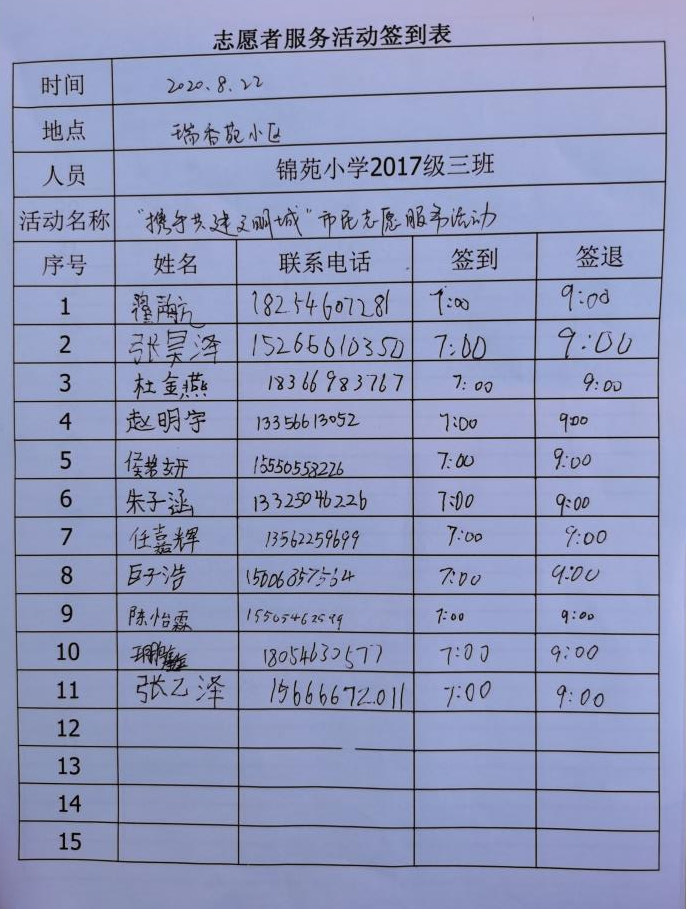 志愿者服务活动签到表
时间 2020.8.22
地点 瑞香苑小区
人员 锦苑小学2017级三班
活动名称 "携手共建文明城"市民志愿服务活动
序号 姓名 联系电话 签到 签退
1 翟雨航 18254607281 7:00 9:00
2 张昊泽 15266010350 7:00 9:00
3 杜金燕 18366983767 7:00 9:00
4 赵明宇 13356613052 7:00 9:00
5 侯碧妍 15550558226 7:00 9:00
6 朱子涵 13325046226 7:00 9:00
7 任嘉辉 13562259699 7:00 9:00
8 巨子浩 15006857564 7:00 9:00
9 陈怡霖 15505462599 7:00 9:00
10 18054630577 7:00 9:00
11 张乙泽 15666672011 7:00 9:00
12
13
14
15